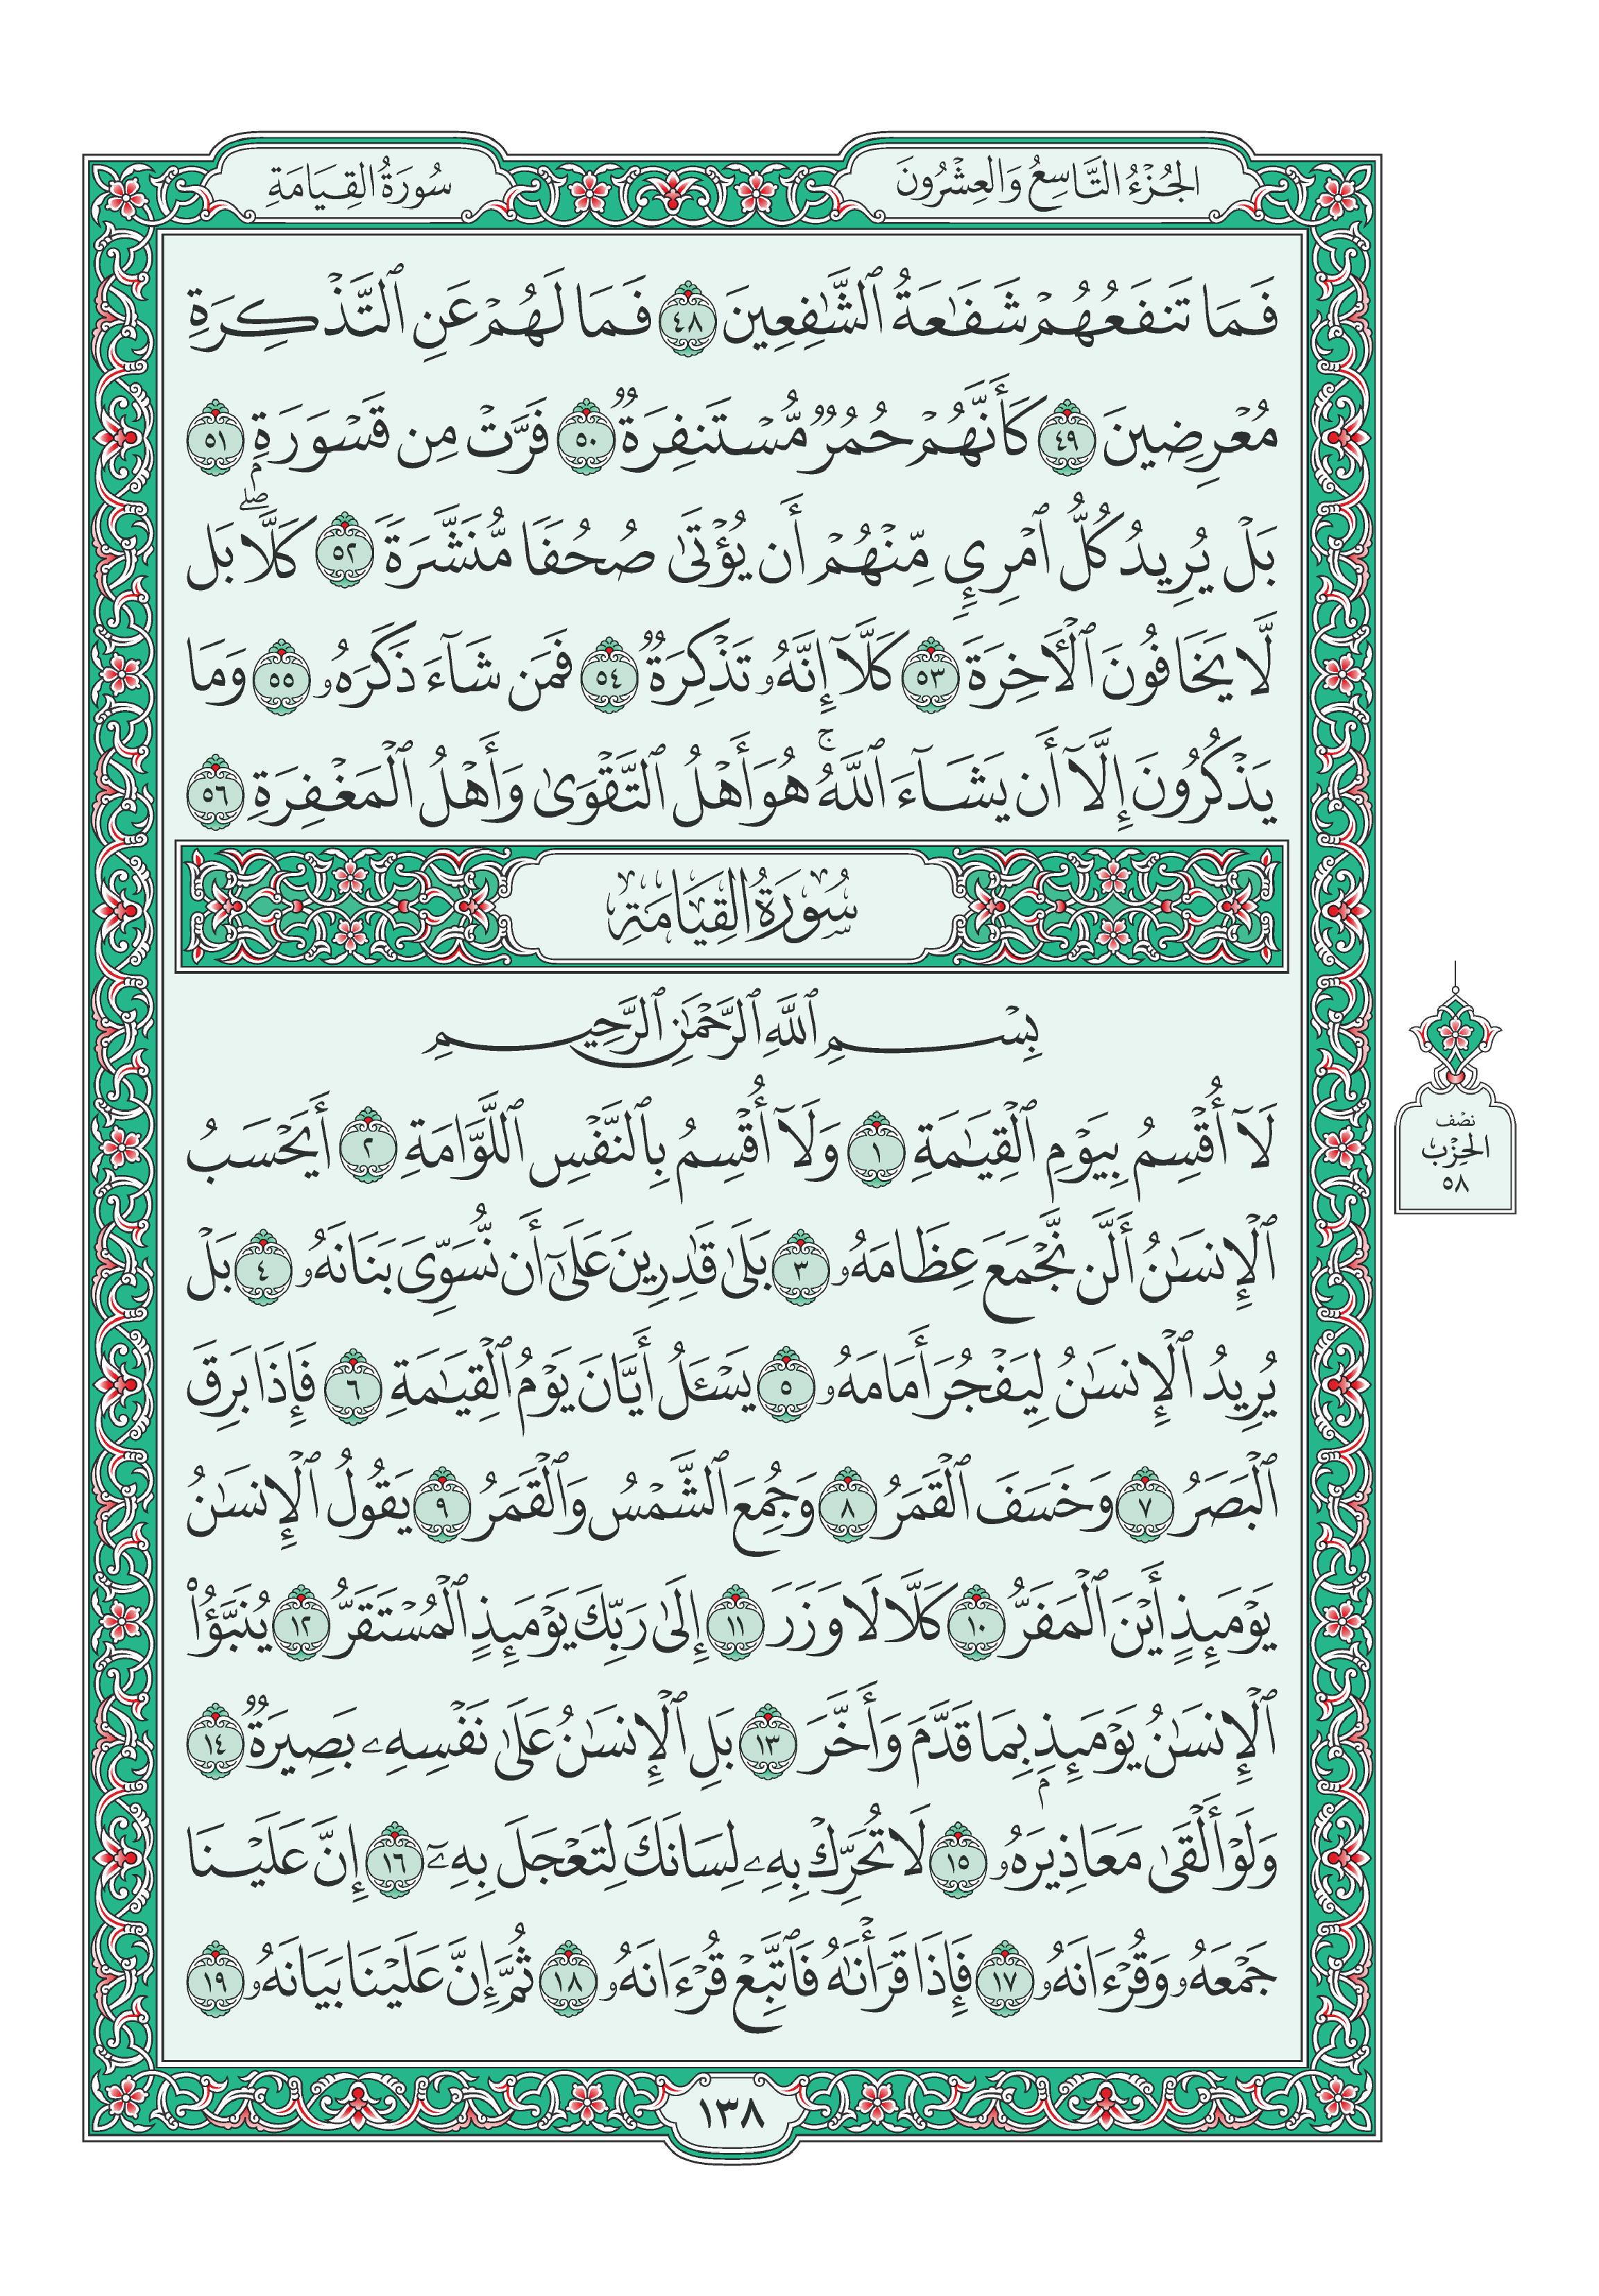 الجُزْءُ التَّاسِعُ وَالعِشْرُونَ
سُورَةُ القِيَامَةِ
فَمَا تَنفَعُهُمْ شَفَٰعَةُ ٱلشَّٰفِعِينَ ٤٨ فَمَا لَهُمْ عَنِ ٱلتَّذْكِرَةِ
مُعْرِضِينَ ٤٩ كَأَنَّهُمْ حُمُرٌ مُّسْتَنفِرَةٌ ٥٠ فَرَّتْ مِن قَسْوَرَةٍۭ ٥١
بَلْ يُرِيدُ كُلُّ ٱمْرِئٍ مِّنْهُمْ أَن يُؤْتَىٰ صُحُفًا مُّنَشَّرَةً ٥٢ كَلَّاۖ بَل
لَّا يَخَافُونَ ٱلْأَخِرَةَ ٥٣ كَلَّآ إِنَّهُۥ تَذْكِرَةٌ ٥٤ فَمَن شَآءَ ذَكَرَهُۥ ٥٥ وَمَا
يَذْكُرُونَ إِلَّآ أَن يَشَآءَ ٱللَّهُۚ هُوَ أَهْلُ ٱلتَّقْوَىٰ وَأَهْلُ ٱلْمَغْفِرَةِ ٥٦
سُورَةُ القِيَامَةِ
بِسْمِ ٱللَّهِ ٱلرَّحْمَٰنِ ٱلرَّحِيمِ
لَآ أُقْسِمُ بِيَوْمِ ٱلْقِيَٰمَةِ ١ وَلَآ أُقْسِمُ بِٱلنَّفْسِ ٱللَّوَّامَةِ ٢ أَيَحْسَبُ
ٱلْإِنسَٰنُ أَلَّن نَّجْمَعَ عِظَامَهُۥ ٣ بَلَىٰ قَٰدِرِينَ عَلَىٰٓ أَن نُّسَوِّىَ بَنَانَهُۥ ٤ بَلْ
يُرِيدُ ٱلْإِنسَٰنُ لِيَفْجُرَ أَمَامَهُۥ ٥ يَسْـَٔلُ أَيَّانَ يَوْمُ ٱلْقِيَٰمَةِ ٦ فَإِذَا بَرِقَ
ٱلْبَصَرُ ٧ وَخَسَفَ ٱلْقَمَرُ ٨ وَجُمِعَ ٱلشَّمْسُ وَٱلْقَمَرُ ٩ يَقُولُ ٱلْإِنسَٰنُ
يَوْمَئِذٍ أَيْنَ ٱلْمَفَرُّ ١٠ كَلَّا لَا وَزَرَ ١١ إِلَىٰ رَبِّكَ يَوْمَئِذٍ ٱلْمُسْتَقَرُّ ١٢ يُنَبَّؤُا۟
ٱلْإِنسَٰنُ يَوْمَئِذٍۭ بِمَا قَدَّمَ وَأَخَّرَ ١٣ بَلِ ٱلْإِنسَٰنُ عَلَىٰ نَفْسِهِۦ بَصِيرَةٌ ١٤
وَلَوْ أَلْقَىٰ مَعَاذِيرَهُۥ ١٥ لَا تُحَرِّكْ بِهِۦ لِسَانَكَ لِتَعْجَلَ بِهِۦٓ ١٦ إِنَّ عَلَيْنَا
جَمْعَهُۥ وَقُرْءَانَهُۥ ١٧ فَإِذَا قَرَأْنَٰهُ فَٱتَّبِعْ قُرْءَانَهُۥ ١٨ ثُمَّ إِنَّ عَلَيْنَا بَيَانَهُۥ ١٩
نصف
الحِزْب
٥٨
١٣٨